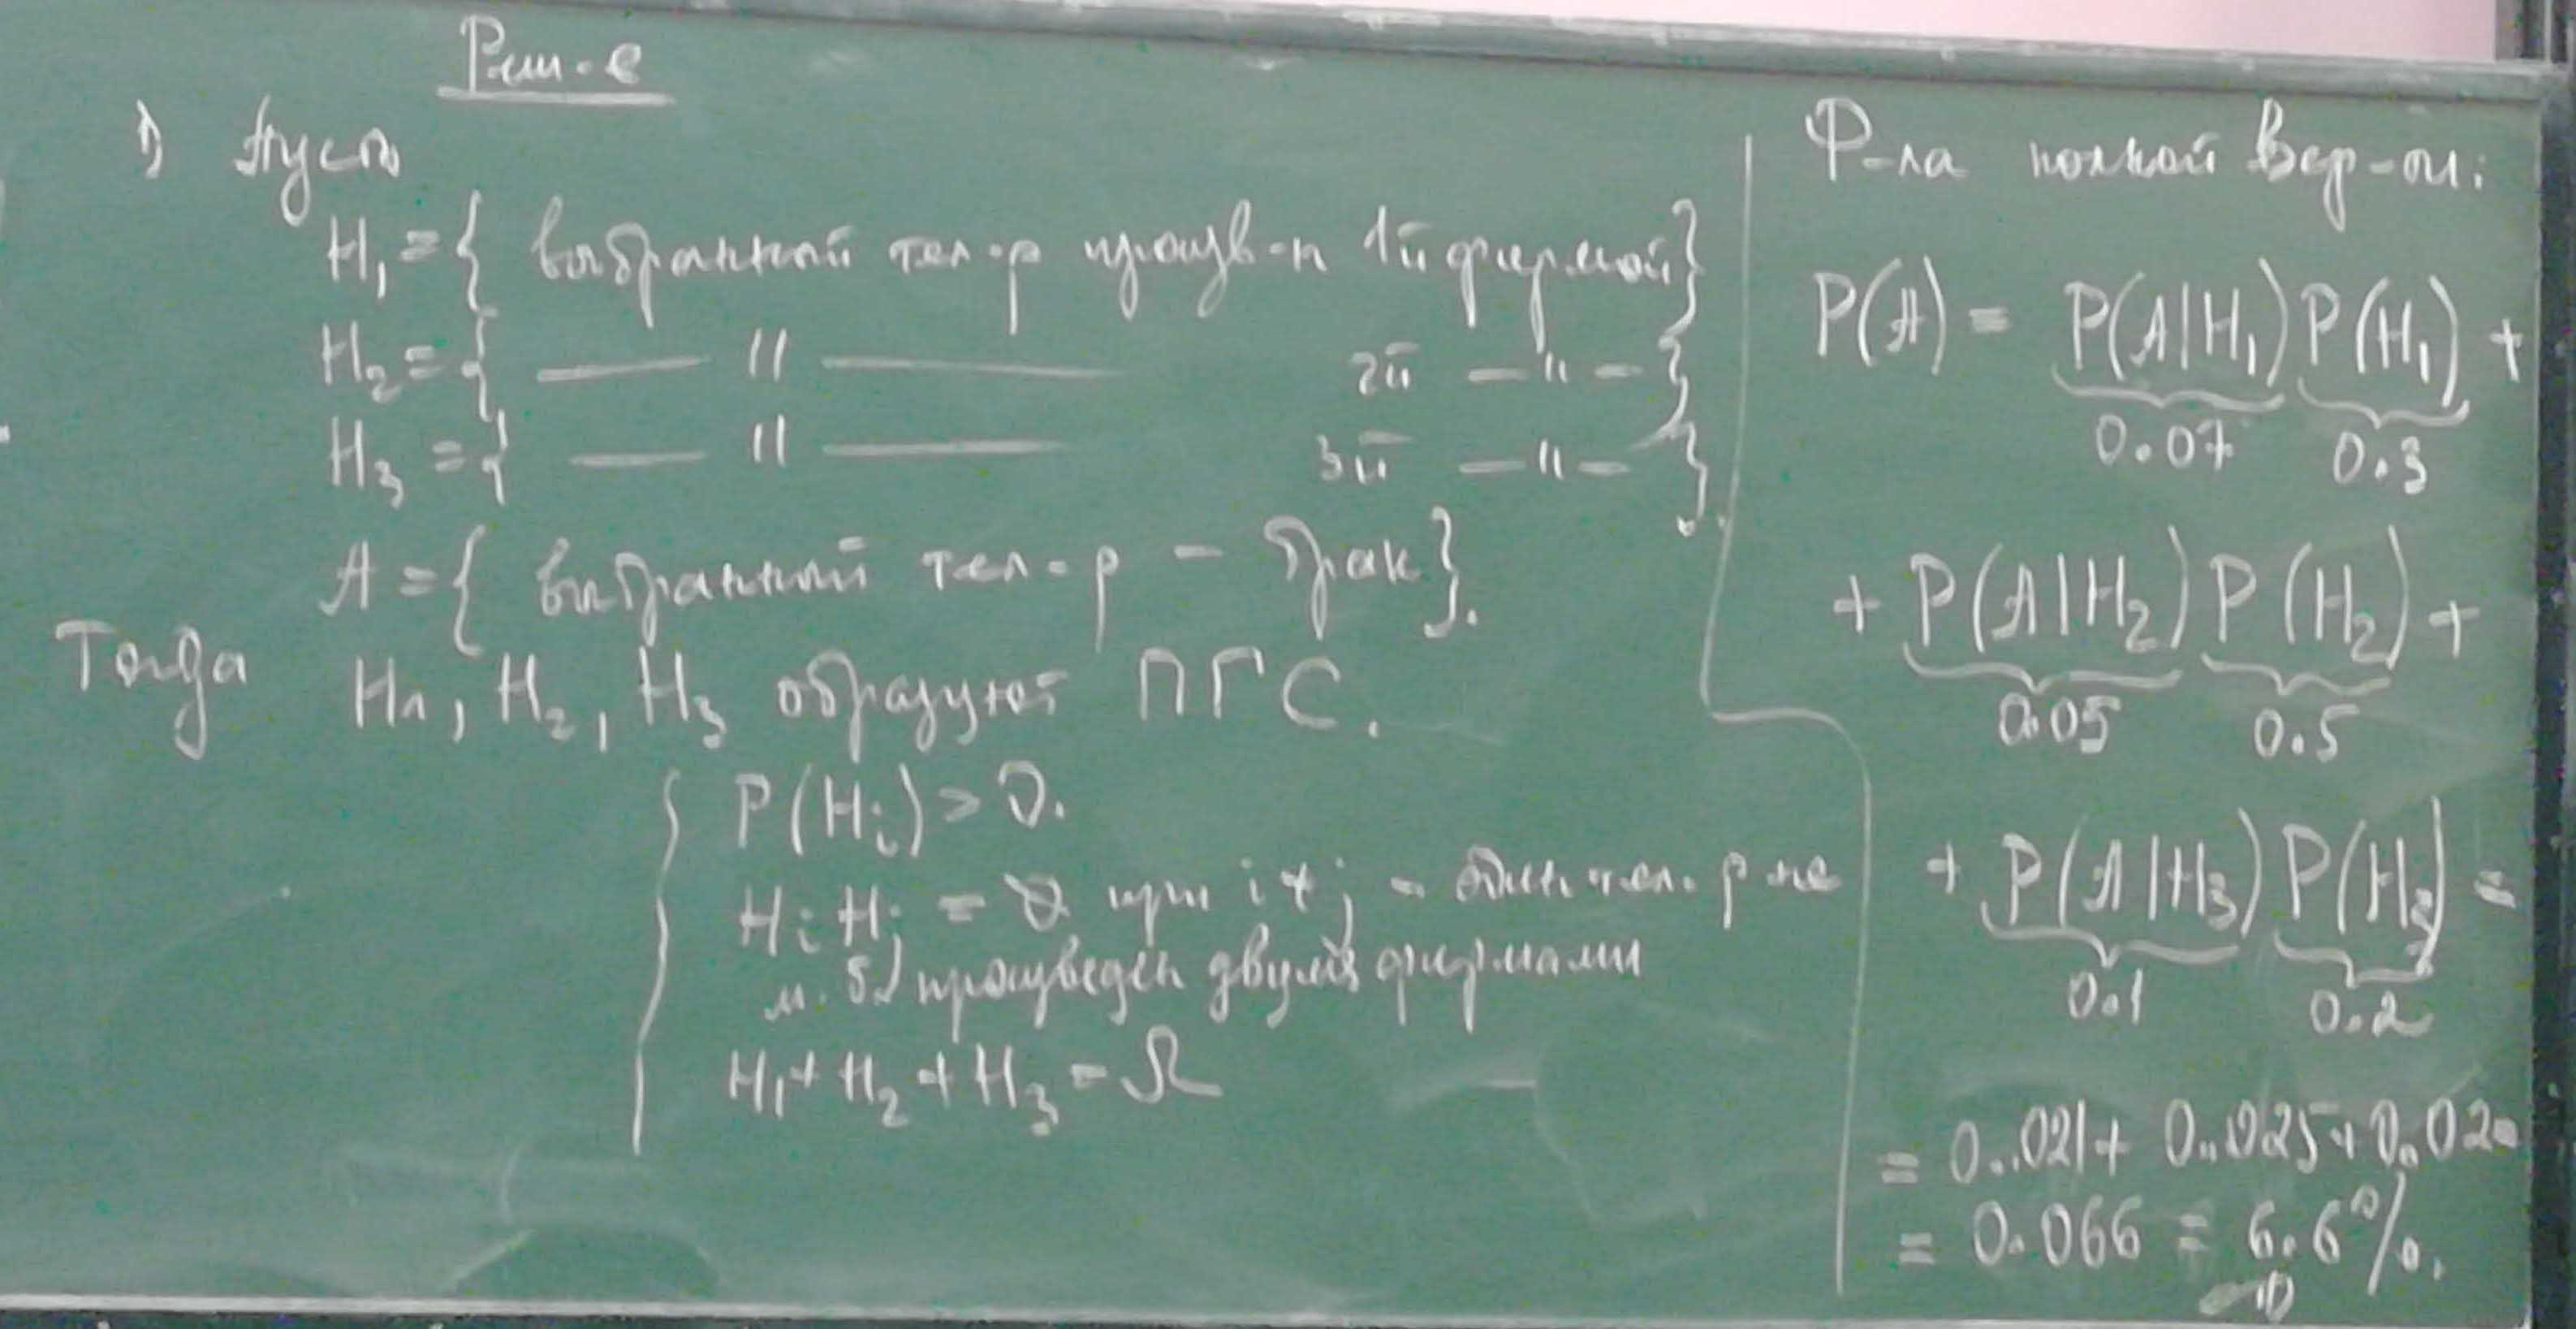 Реш-е
1) Пусть
H₁ = { выбранный тел-р произв-н 1й фирмой }
H₂ = { — " — 2й — " — }
H₃ = { — " — 3й — " — }.
A = { выбранный тел-р — брак }.
Тогда H₁, H₂, H₃ образуют ПГС.
P(Hᵢ) > 0.
HᵢHⱼ = ∅ при i ≠ j - один тел-р не
м.б. произведен двумя фирмами
H₁ + H₂ + H₃ = Ω
Ф-ла полной вер-ти:
P(A) = P(A|H₁) P(H₁) +
0.07 0.3
+ P(A|H₂) P(H₂) +
0.05 0.5
+ P(A|H₃) P(H₃) =
0.1 0.2
= 0.021 + 0.025 + 0.020
= 0.066 = 6.6%.